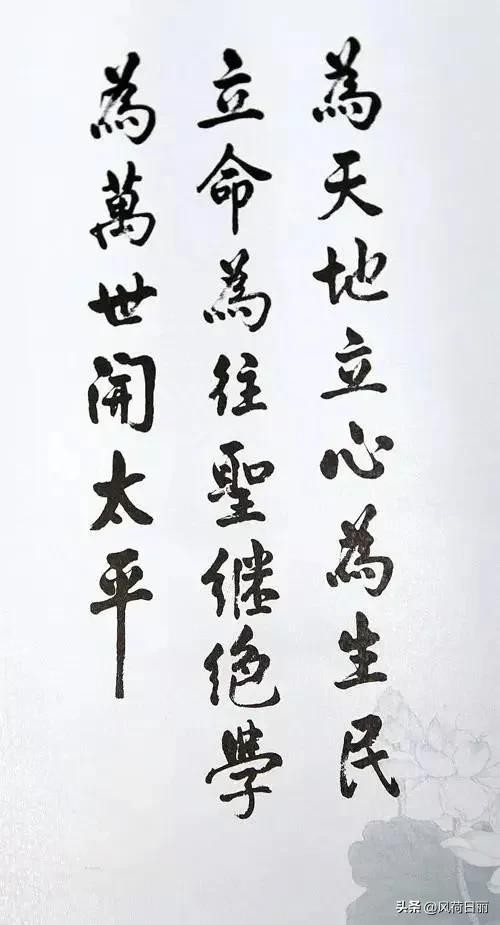 為天地立心為生民
立命為往聖继绝學
為萬世開太平
头条 @风荷日丽